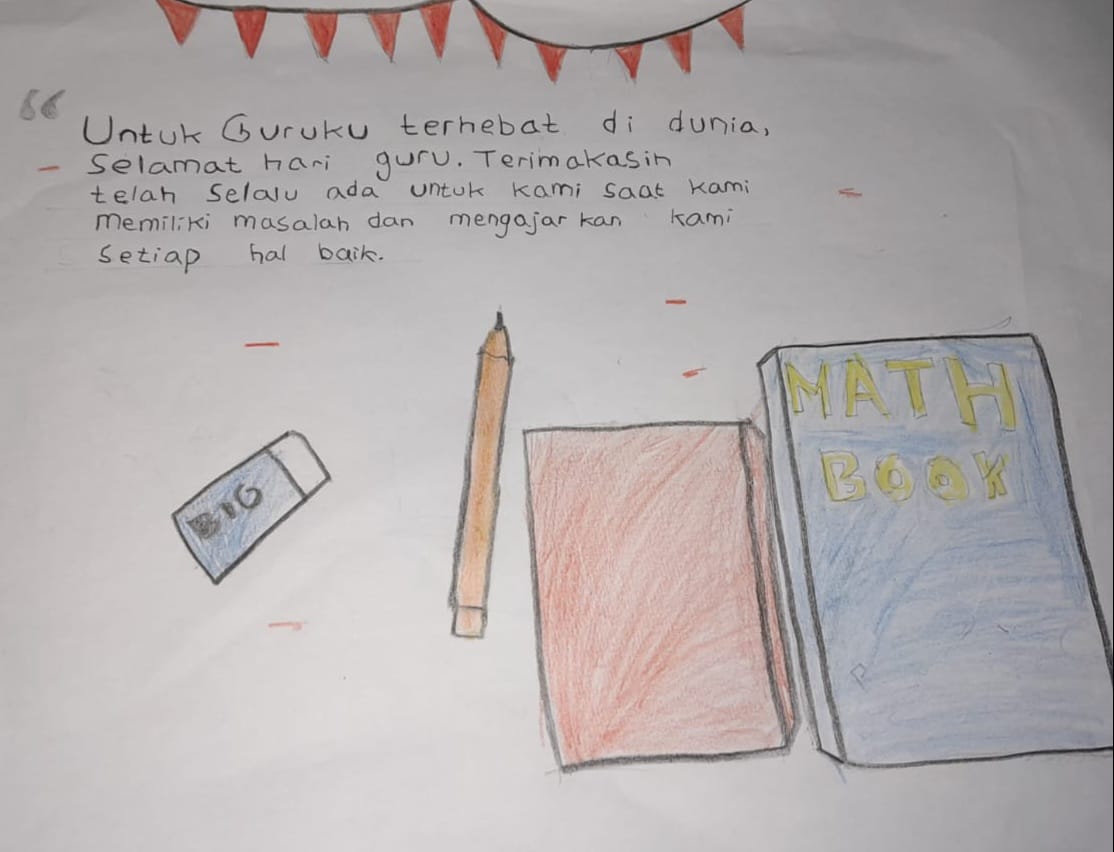 “
Untuk Guruku terhebat di dunia,
Selamat hari guru. Terimakasih
telah selalu ada untuk kami saat kami
memiliki masalah dan mengajar kan kami
setiap hal baik.
BIG
MATH
BOOK